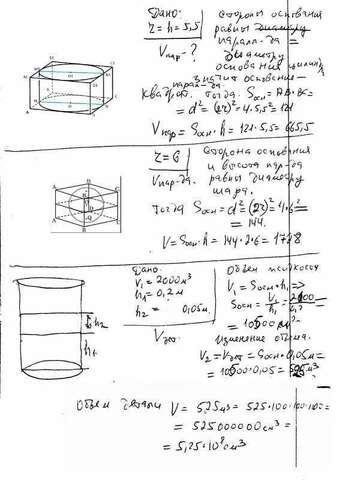 Дано:
r = h = 5,5
Vпар - ?
Стороны основания
равны
паралл-да =
диаметру
основания цилинд
значит основание –
квадрат. Тогда Sосн = AB·BC =
= d² = (2r)² = 4·5,5² = 121
Vпар = Sосн·h = 121·5,5 = 665,5
r = 6
Vпар-да.
Сторона основания
и высота пар-да
равны диаметру
шара.
Тогда Sосн = d² = (2r)² = 4·6² =
= 144.
V = Sосн·h = 144·2·6 = 1728
Дано:
V₁ = 2000 м³
h₁ = 0,2 м
h₂ = 0,05 м
Vдет
h₂
h₁
Объем жидкости
V₁ = Sосн·h₁ =>
Sосн = V₁/h₁ =
Изменение объема.
V₂ = Vдет = Sосн·0,05 м =
= 10500·0,05 = 525 м³
Объем детали V = 525 м³ = 525·100·100·100 =
= 525000000 см³ =
= 5,25·10⁸ см³